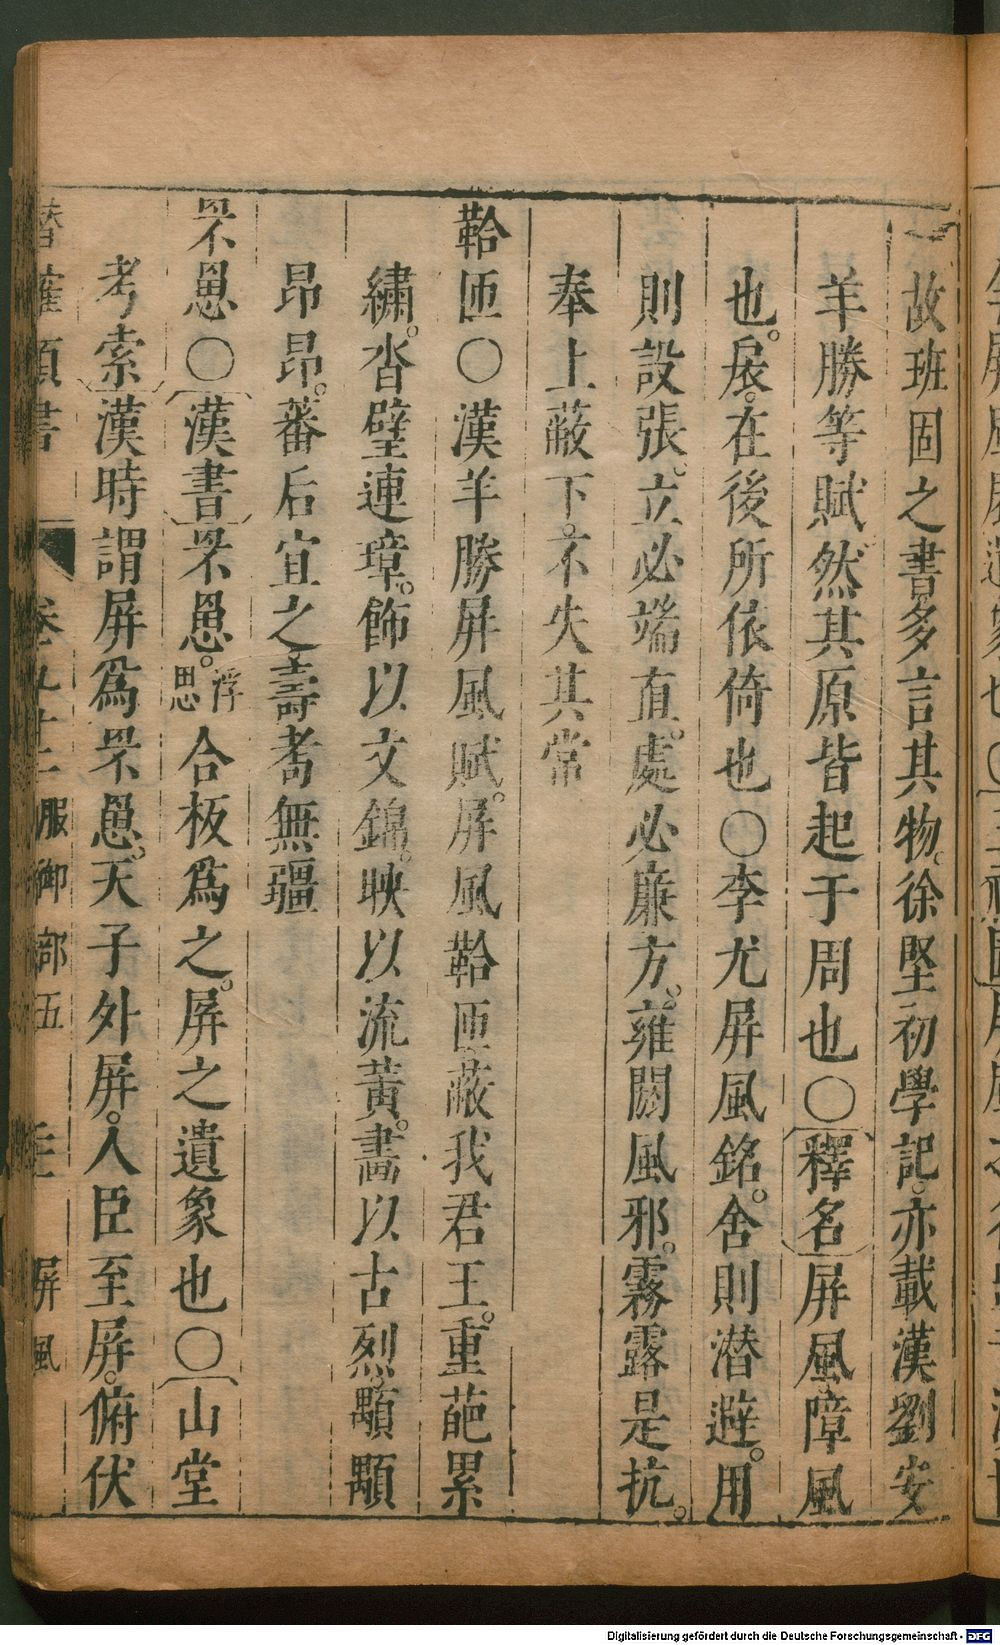 故班固之書多言其物。徐堅初學記。亦載漢劉安
羊勝等賦然其原皆起于周也〇釋名屏風。障風
也。扆。在後所依倚也〇李尤屏風銘。舍則潛避。用
則設張。立必端直。處必廉方。雍閼風邪。霧露是抗。
奉上蔽下。不失其常
鞈匝〇漢羊勝屏風賦。屏風鞈匝蔽我君王。重葩累
繡。沓璧連璋。飾以文錦。映以流黃。畵以古烈顒顒
昂昂。蕃后宜之壽耇無疆
罘罳〇漢書罘罳。浮思合板爲之。屏之遺象也〇山堂
考索漢時謂屏爲罘罳。天子外屏。人臣至屏。俯伏
潛確類書
卷九十二服御部五
屏風
Digitalisierung gefördert durch die Deutsche Forschungsgemeinschaft - DFG